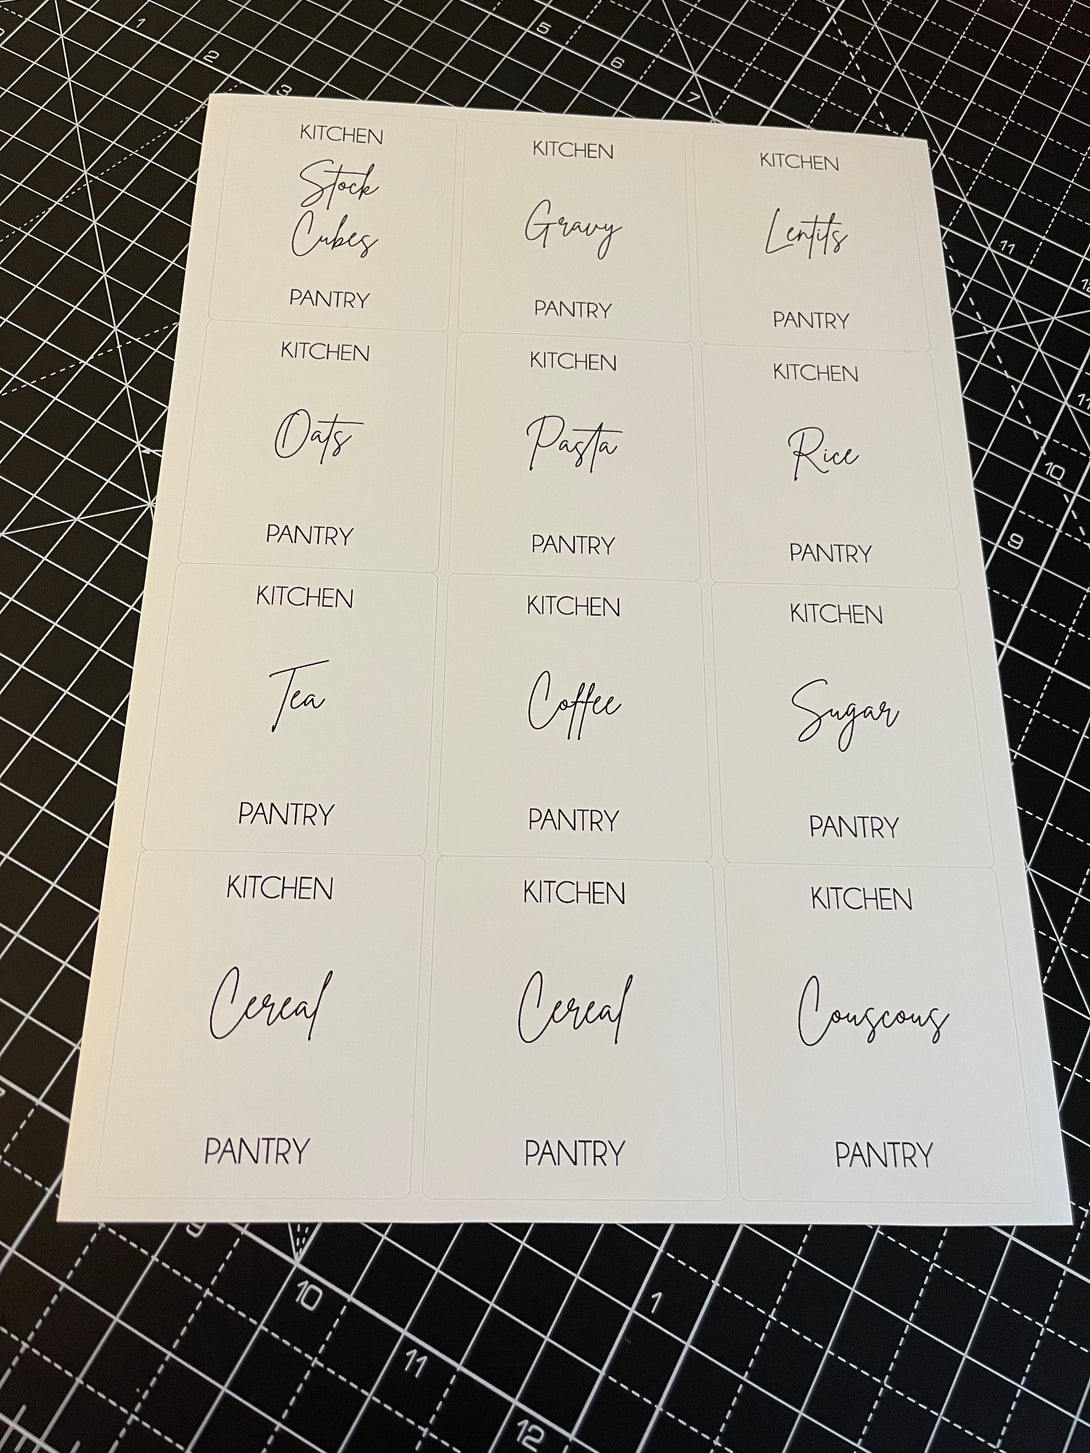 1
2
3
5
6
7
KITCHEN
Stock
Cubes
PANTRY
KITCHEN
Gravy
PANTRY
KITCHEN
Lentils
PANTRY
11
KITCHEN
Oats
PANTRY
KITCHEN
Pasta
PANTRY
KITCHEN
Rice
PANTRY
11
10
9
KITCHEN
Tea
PANTRY
KITCHEN
Coffee
PANTRY
KITCHEN
Sugar
PANTRY
KITCHEN
Cereal
PANTRY
KITCHEN
Cereal
PANTRY
KITCHEN
Couscous
PANTRY
9
10
11
12
1